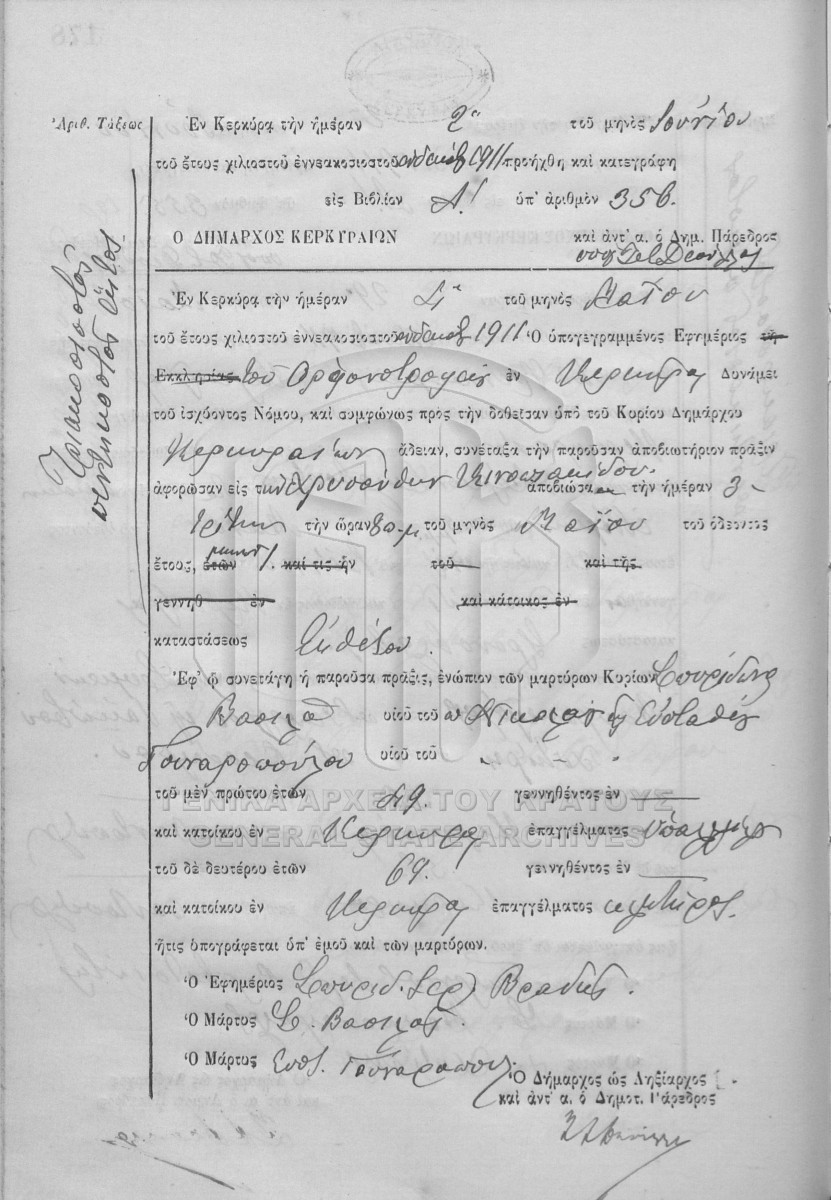 Ἀριθ. Τάξεως
Τριακοσιοστὸς
πεντηκοστὸς ἕκτος
Ἐν Κερκύρᾳ τὴν ἡμέραν 2α τοῦ μηνὸς Ἰουνίου
τοῦ ἔτους χιλιοστοῦ ἐννεακοσιοστοῦ 1911 προήχθη καὶ κατεγράφη
εἰς Βιβλίον Α! ὑπ' ἀριθμὸν 356.
Ο ΔΗΜΑΡΧΟΣ ΚΕΡΚΥΡΑΙΩΝ καὶ ἀντ' α. ὁ Δημ. Πάρεδρος
Ἐν Κερκύρᾳ τὴν ἡμέραν τοῦ μηνὸς Μαΐου
τοῦ ἔτους χιλιοστοῦ ἐννεακοσιοστοῦ 1911 Ὁ ὑπογεγραμμένος Ἐφημέριος τῆς
Ἐκκλησίας τοῦ Ὀρφανοτροφείου ἐν Κερκύρᾳ Δυνάμει
τοῦ ἰσχύοντος Νόμου, καὶ συμφώνως πρὸς τὴν δοθεῖσαν ὑπὸ τοῦ Κυρίου Δημάρχου
Κερκυραίων ἄδειαν, συνέταξα τὴν παροῦσαν ἀποβιωτήριον πρᾶξιν
ἀφορῶσαν εἰς τὴν Χρυσάνθην ἀποβιώσα τὴν ἡμέραν 3
τρίτην τὴν ὥραν 8 π.μ τοῦ μηνὸς Μαΐου τοῦ ὁδεύοντος
ἔτους, ἐτῶν 1. καὶ τις ἦν τοῦ καὶ τῆς
γεννηθ ἐν καὶ κάτοικος ἐν
καταστάσεως Ἐκθέτου.
Ἐφ' ᾧ συνετάγη ἡ παροῦσα πρᾶξις, ἐνώπιον τῶν μαρτύρων Κυρίων Σπυρίδωνα
Βασιλᾶ υἱοῦ τοῦ Νικολάου καὶ Εὐσταθίου
Γουναροπούλου υἱοῦ τοῦ
τοῦ μὲν πρώτου ἐτῶν 49. γεννηθέντος ἐν
καὶ κατοίκου ἐν Κερκύρᾳ ἐπαγγέλματος ὑπαλλήλου
τοῦ δὲ δευτέρου ἐτῶν 69. γεννηθέντος ἐν
καὶ κατοίκου ἐν Κερκύρᾳ ἐπαγγέλματος
ἥτις ὑπογράφεται ὑπ' ἐμοῦ καὶ τῶν μαρτύρων.
Ὁ Ἐφημέριος Σπυρίδ. Ἱερ Βραδῆς.
Ὁ Μάρτυς Σ. Βασιλᾶς.
Ὁ Μάρτυς Ευσ. Γουναροπουλ
Ὁ Δήμαρχος ὡς Ληξίαρχος
καὶ ἀντ' α. ὁ Δημοτ. Πάρεδρος
ΓΕΝΙΚΑ ΑΡΧΕΙΑ ΤΟΥ ΚΡΑΤΟΥΣ
GENERAL STATE ARCHIVES